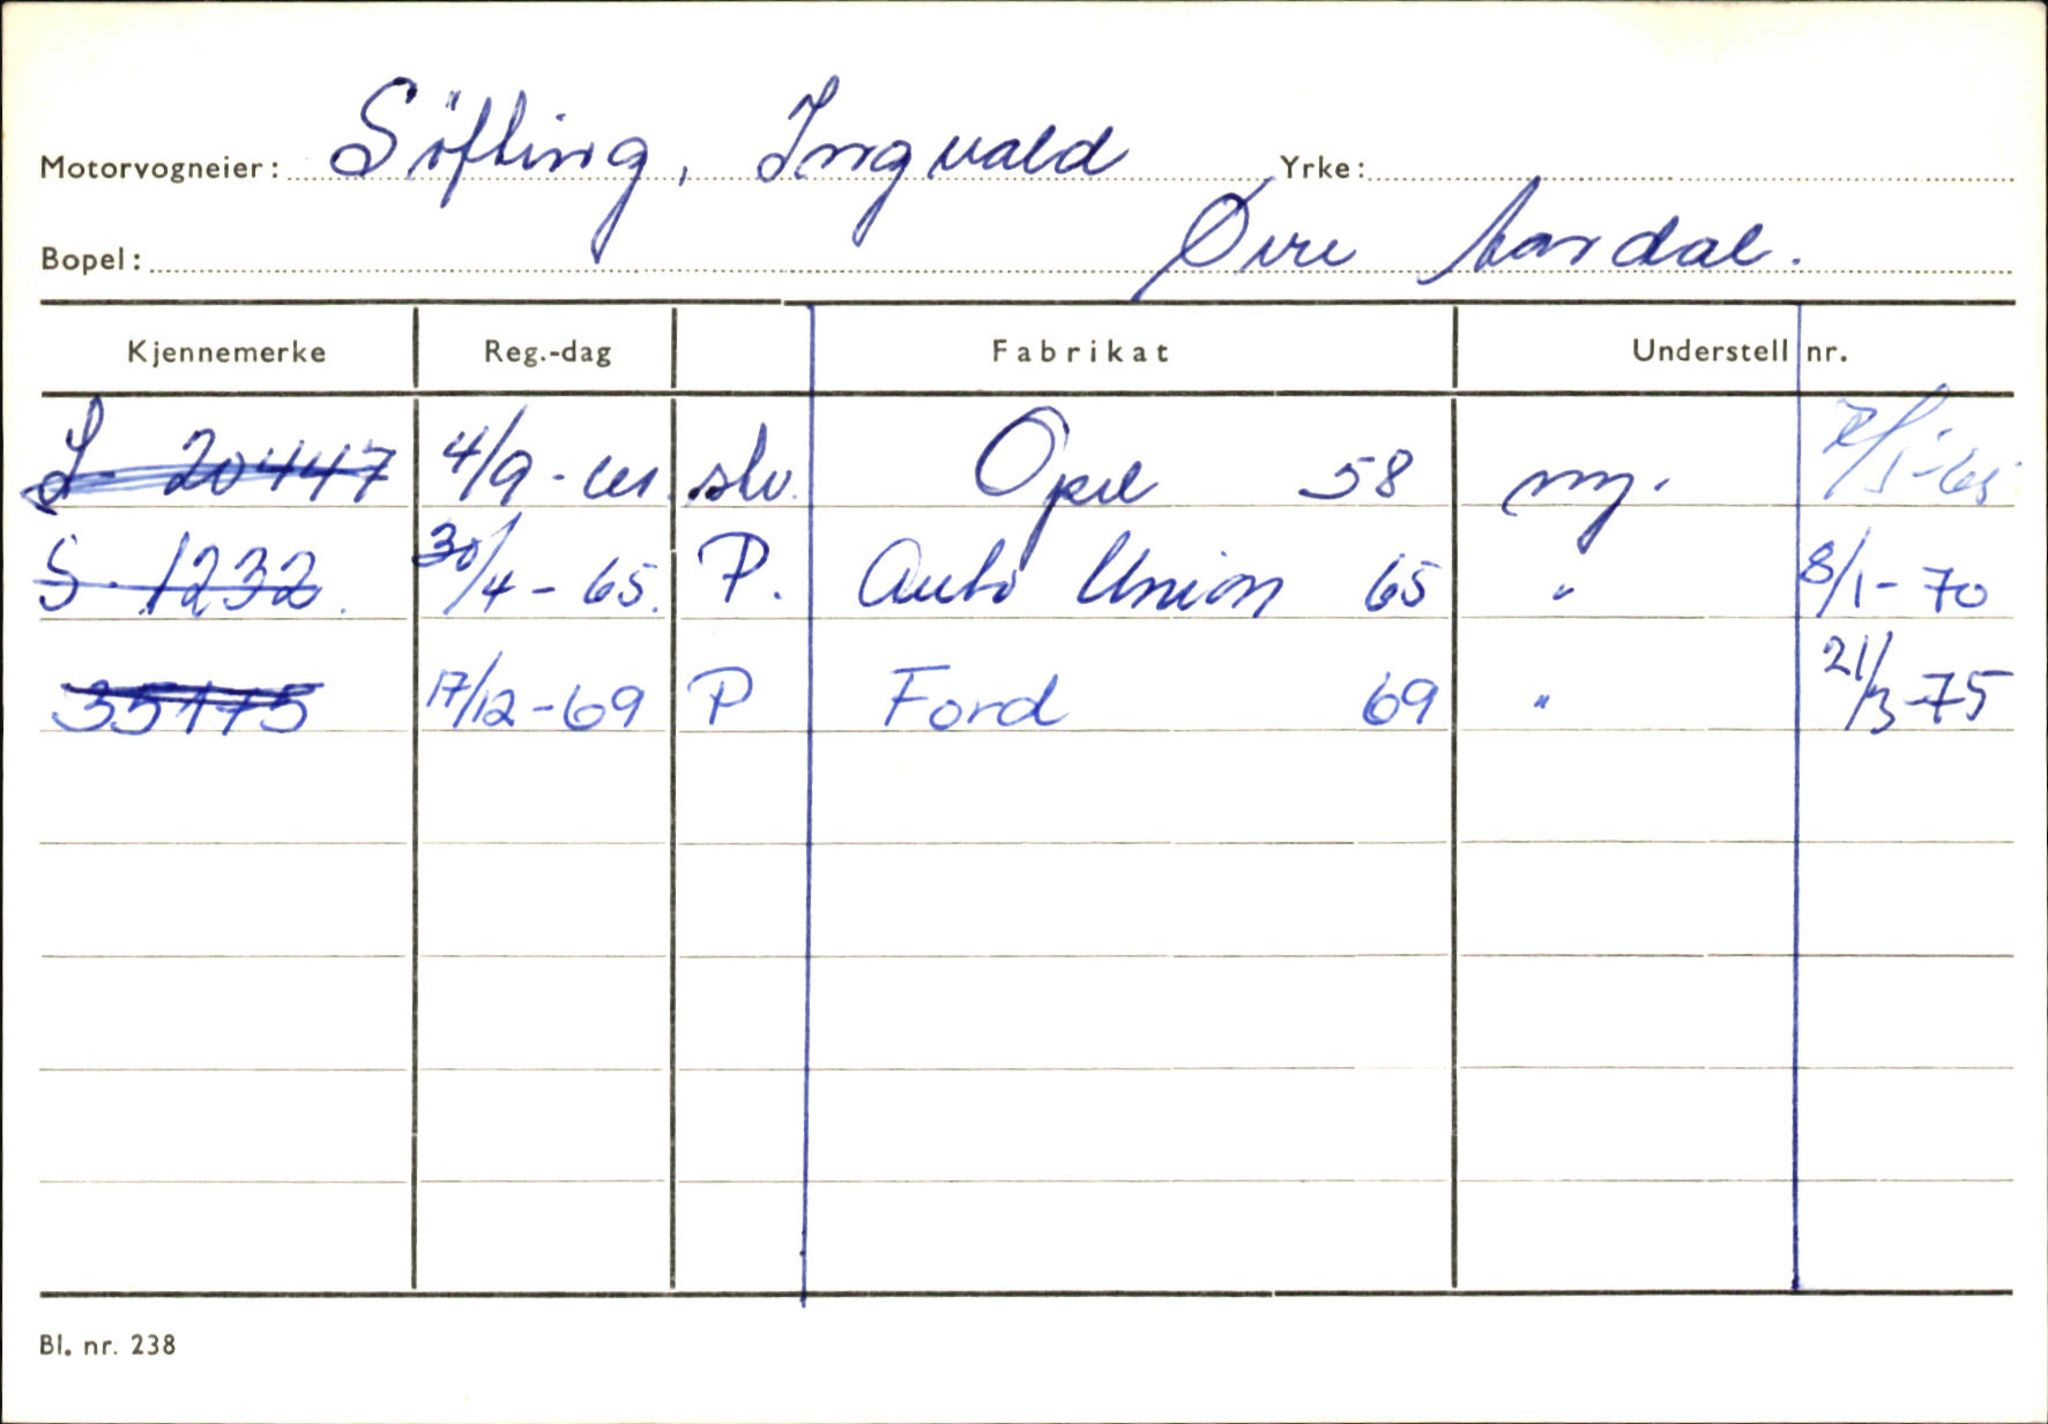 Motorvogneier: Söfting, Ingvald Yrke:
Bopel: Øvre Aardal.
Kjennemerke Reg.-dag Fabrikat Understell nr.
S- 20447 4/9-61. slv. Opel 58 ny. 7/5-65
S. 1232. 30/4-65. P. Auto Union 65 " 8/1-70
35175 17/12-69 P Ford 69 " 21/3-75
Bl. nr. 238